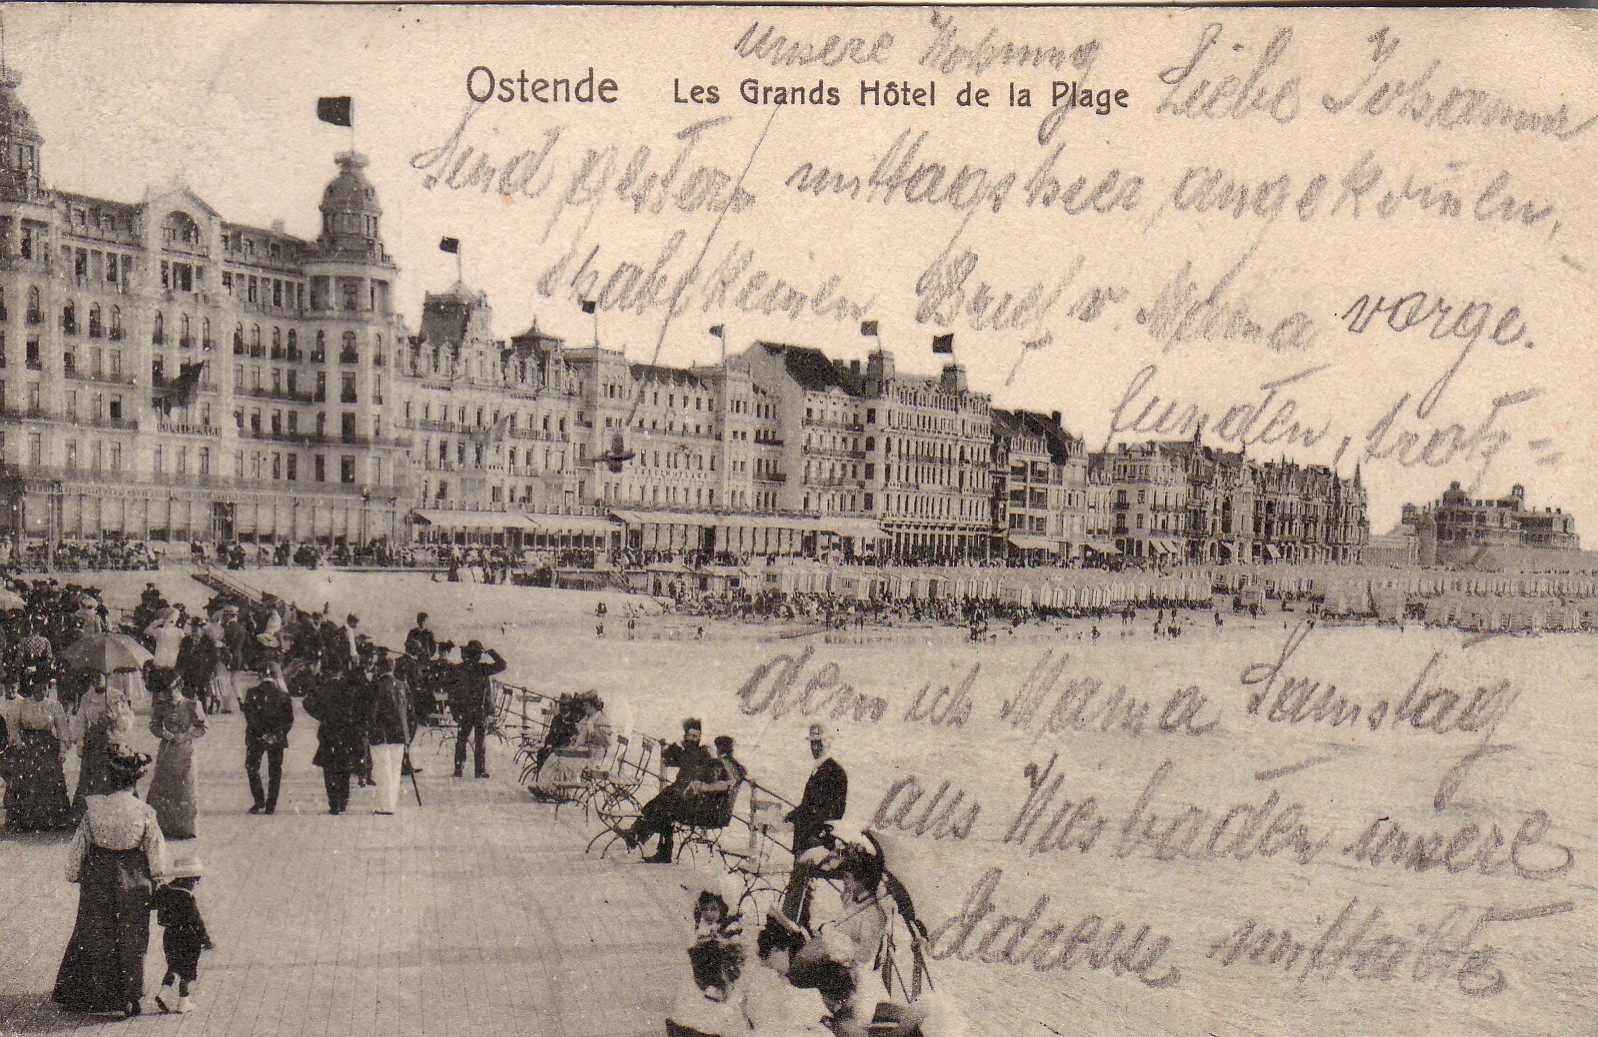 unsere Wohnung
Ostende Les Grands Hôtel de la Plage
Liebe Johanna
Sind gestern mittags hier angekom̄en,
habe keinen Brief v. Mama vorge-
funden, trotz=
dem ich Mama Samstag
aus Wiesbaden unsere
Adresse mitteilte